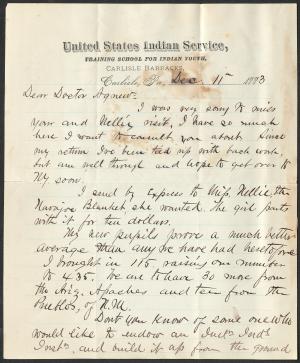 United States Indian Service,
TRAINING SCHOOL FOR INDIAN YOUTH,
CARLISLE BARRACKS,
Carlisle, Pa., Dec. 11 1883
Dear Doctor Agnew:
I was very sorry to miss
your and Nellie's visit, I have so much
here I want to consult you about. Since
my return I've been tied up with back work
but am well through and hope to get over to
NY soon.
I send by Express to Miss Nellie, the
Navajoe Blanket she wanted. The girl parts
with it for ten dollars.
My new pupils prove a much better
average than any we have had heretofore
I brought in 115 raising our number
to 435. We are to have 30 more from
the Ariz. Apaches and ten from the
Pueblos, of N.M.
Dont you know of some one who
would like to endow an Ind'l
Inst., and build it up from the ground